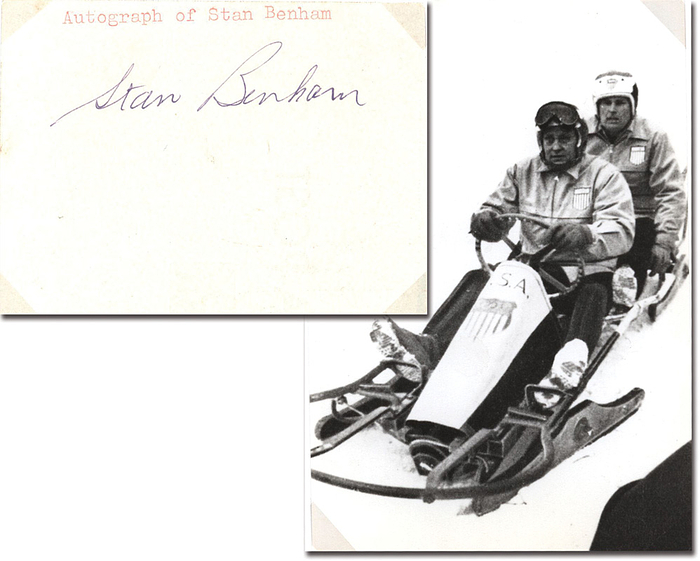 Autograph of Stan Benham
Stan Benham
S.A.